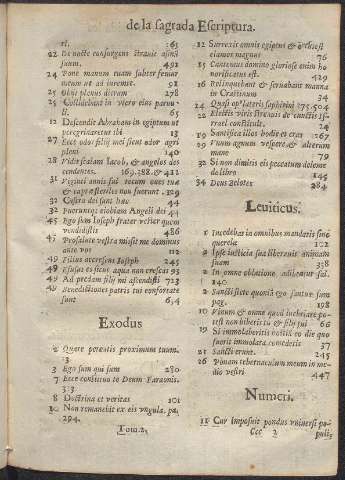 de la sagrada Escriptura.
rt. 65
22 De nocte consurgens strauit asinũ
suum. 491
24 Pone manum tuam subter femur
meum ut ad iurem. 91
25 Obijt plenus dierum 278
25 Collidebant in utero eius paruu-
li. 65
12 Descendit Abraham in egiptum ut
peregrinaretur ibi 13
27 Ecce odor filij mei sicut odor agri
pleni 140
28 Vidit scalam Iacob, & angelos des
cendentes. 169.288. & 411
31
& captæ fuerunt. 329
32 Castra dei sunt hæc 44
32 Fueruntque ei obiam Angeli dei 44
45 Ego sum Ioseph frater vester quem
vendidistis 486
45 Pro salute vestra misit me dominus
ante vos 112
49 Filius accrescens Ioseph 245
49 Effusus es sicut aqua non crescas 93
49 Ad predam fili mi ascendisti 723
49 Benedictiones patris tui confortatæ
sunt 634
Exodus
2 Quare percutis proximum tuum.
13
3 Ego sum qui sum 280
7 Ecce constitui te Deum Faraonis.
313
8 Doctrina et veritas 101
10 Non remanebit ex eis vngula. pa.
294.
Tom.2.
12 Surrexit omnis egiptus &
clamor magnus 76
15 Cantemus domino gloriose enim ho
norificatus est. 429
16 Relinquebant & seruabant manna
in Crastinum 34
24 Quasi opus lateris saphirini 175.504
22 Electis viris strauit de cunctis Is-
rael constitute. 24
19 Santifica illos hodie et cras 267
29 Vnum agnum vespere, & alterum
mane 79
32 Si non dimitis eis peccatum deleme
de libro 145
34 Deus zelotes 284
Leuiticus.
1 Incedebat in omnibus mandatis sine
querela 102
2 Ipse iusticia sua liberauit animam
suam 338
2 In omne oblatione sal.
140
2 Sancti estote quoniã ego sanctus sum
pag. 198
10 Vinum & omne quod inebriare po-
test non bibetis tu & filij tui 66
19 Si immolaueritis hostiã eo die quo
fuerit immolata comedetis 37
21 Sancti erunt. 245
26 Ponam tabernaculum meum in me-
dio vestri 447
Numeri.
11 Cur imposuit pondus vniuersi po
Ccc 2 pulis